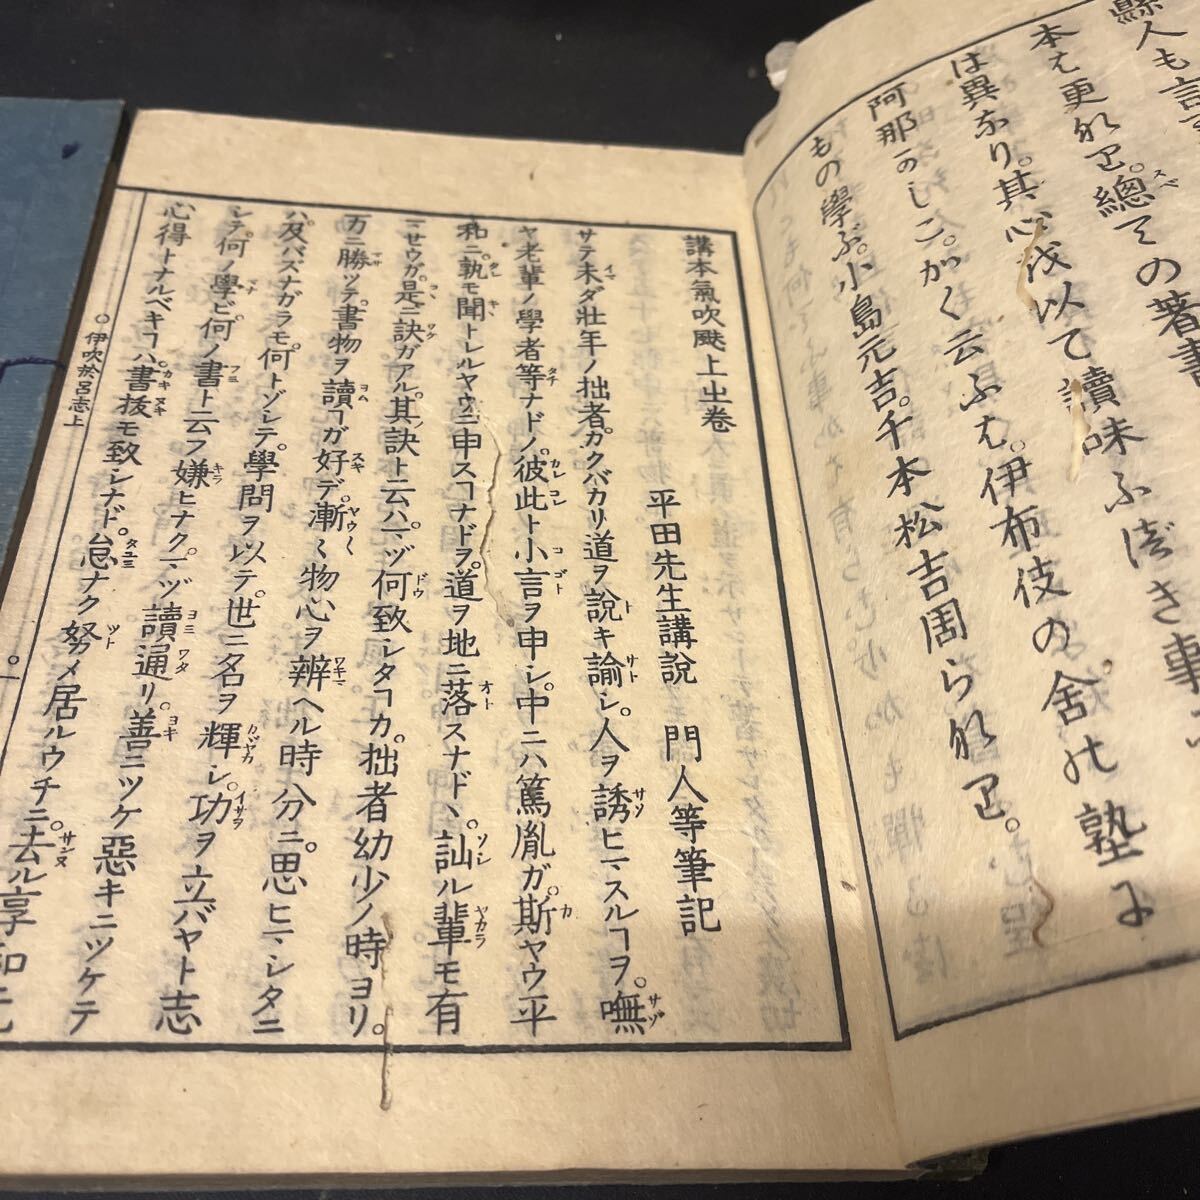 縣人も言
本は更なり。總ての著書
は異なり。其心伐以て讀味ふ法き事
阿那かしこ。かく云ふは。伊布伎の舍の塾に
もの學ぶ。小島元吉。千本松吉周らなり。
講本氣吹颫上之卷
平田先生講說　門人等筆記
サテ未ダ壯年ノ拙者。カクバカリ道ヲ說キ諭シ。人ヲ誘ヒマスルヿヲ。嘸
ヤ老輩ノ學者等ナドノ。彼此ト小言ヲ申シ。中ニハ篤胤ガ。斯ヤウ平
和ニ孰モ聞トレルヤウニ申スヿナドヲ。道ヲ地ニ落スナド、訕ル輩モ有
ニせウガ。是ニ訣ガアル。其訣ト云ハ。マヅ何致シタヿカ。拙者幼少ノ時ヨリ。
万ニ勝ツテ書物ヲ讀ヿガ好デ。漸〱物心ヲ辨ヘル時分ニ。思ヒマシタニ
ハ。及バズナガラモ。何トゾシテ。學問ヲ以テ。世ニ名ヲ輝シ。功ヲ立バヤト志
シテ。何ノ學ビ何ノ書ト云フ嫌ヒナク。マヅ讀通リ。善ニツケ惡キニツケテ
心得トナルベキヿハ。書拔モ致シナド。怠ナク努メ居ルウチニ。去ル享和元
○伊吹於呂志上
○一